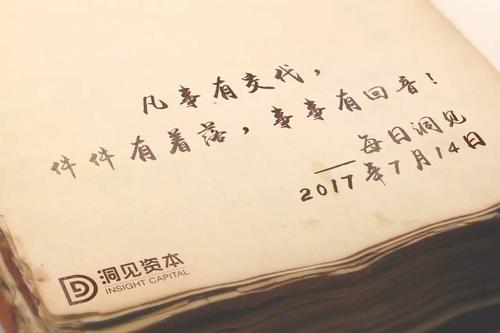 凡事有交代，
件件有着落，事事有回音！
——每日洞见
2017年7月14日
洞见资本
INSIGHT CAPITAL